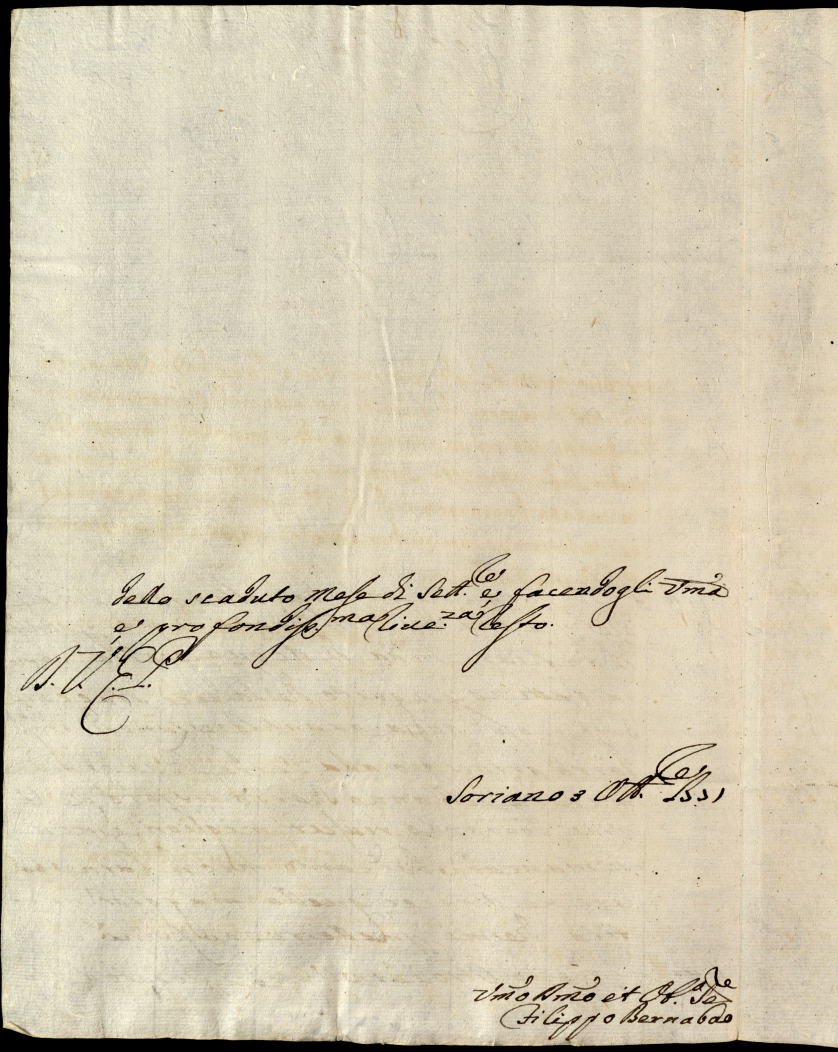 dello scaduto Mese di Sett.re e facendogli Uma
e profondiss.ma Rive.za resto.
Di V. E.
Soriano 3 Ott.re
Umo Dmo et Ob.
Filippo Bernabao